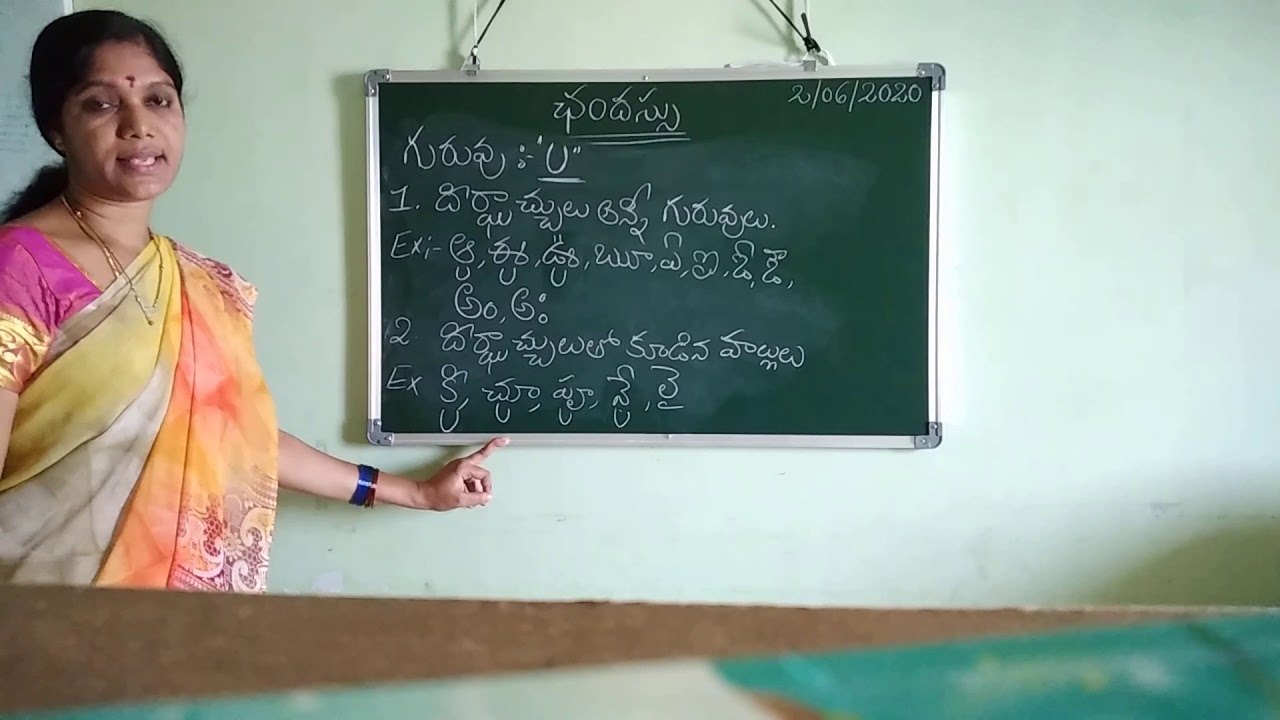 ఛందస్సు 2/06/2020
గురువు :- "U"
1. దీర్ఘాచ్చులు అన్నీ గురువులు.
Ex:- ఆ, ఈ, ఊ, ౠ, ఏ, ఐ, ఓ, ఔ,
అం, అః
2. దీర్ఘాచ్చులుతో కూడిన హల్లులు
Ex చూ, పూ, లై